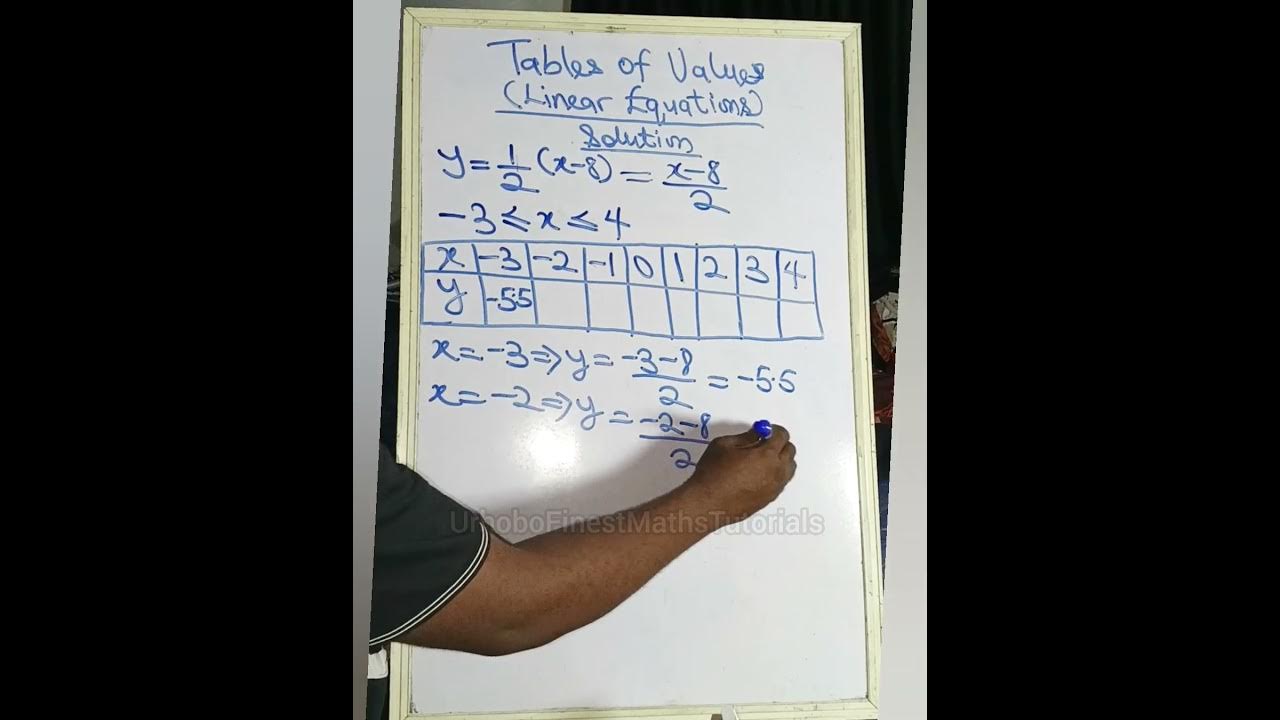 Tables of Values
(Linear Equations)
Solution
y = 1/2 (x-8) = x-8/2
-3 ≤ x ≤ 4
x -3 -2 -1 0 1 2 3 4
y -5.5
x = -3 ⇒ y = -3-8/2 = -5.5
x = -2 ⇒ y = -2-8/2
UrhoboFinestMathsTutorials